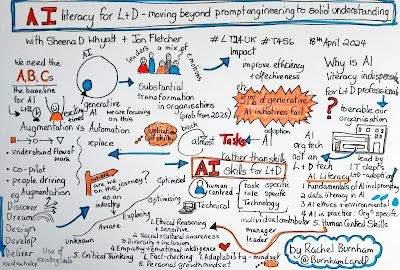 AI literacy for L+D - moving beyond prompt engineering to solid understanding
with Sheena D Whyatt + Jon Fletcher
# LT24UK # T4S6 18th April 2024
We need the
A, B, Cs
the baseline
for AI
AI
generative
AI we are focusing
on this
leaders a mix of emotions
Substantial
transformation
in organisations
(prob from 2025)
Impact
improve efficiency
+ effectiveness
etc
51% of generative
AI initiatives fail
adoption
Why is AI
literacy indispensable
for L+D professionals
?
to enable our
organisation
Augmentation vs Automation
replace
application of skills
almost Tasks
AI
rather than skills
• understand flow of
work
• co-pilot
• people driving
augmentation
Discover
Dream
Design
Develop
Deliver
Use of
existing skills
where are
we on this journey?
as an
industry
unknown
Aware
Exploring
Optimised
Optimising
AI skills for L+D
human
centred
task specific
role specific
Technical
Technology
AI
org tech
not an
L+D tech
lead by
IT depts
AI Literacy
1 Fundamentals of AI incl prompting
2 data literacy in AI
3 AI ethics + environmental
4 AI in practice: Org specific
5 Human Centred Skills
individual contributor
manager
leader
1 Ethical Reasoning
+ sensitive
2 Social + cultural awareness
3 Diversity + Inclusion
4 Empathy + emotional intelligence
5 Critical Thinking
6 Fact-checking
7 Adaptability - mindset
8 Personal growth mindset
by Rachel Burnham
@BurnhamLandD